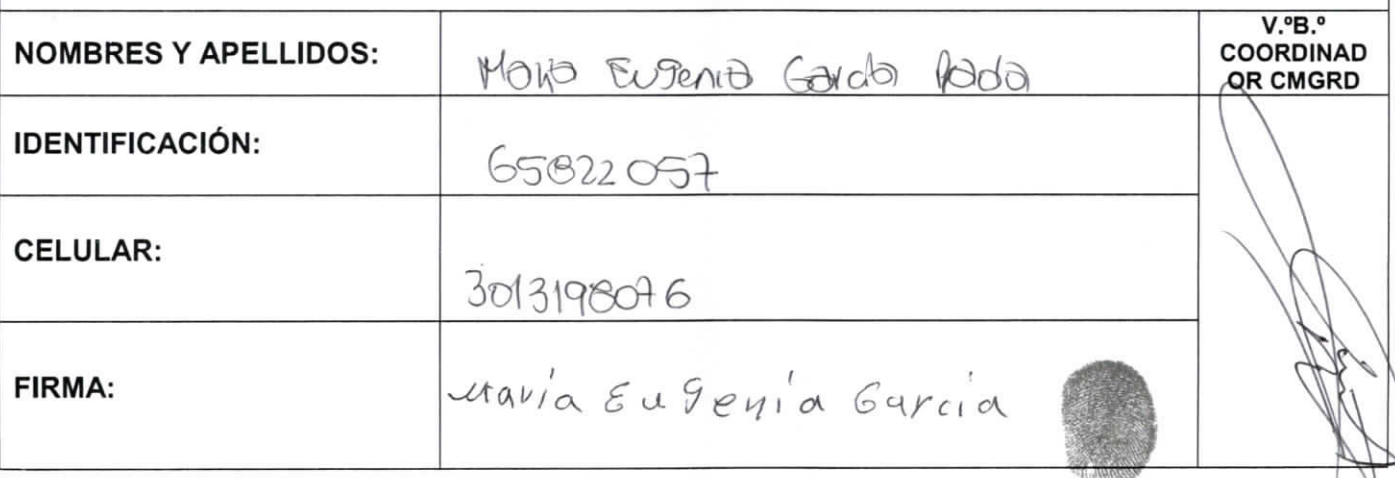 NOMBRES Y APELLIDOS: Maria Eugenia Garcia Prada
V.ºB.º
COORDINAD
OR CMGRD
IDENTIFICACIÓN: 65822057
CELULAR: 3013198076
FIRMA: Maria Eugenia Garcia